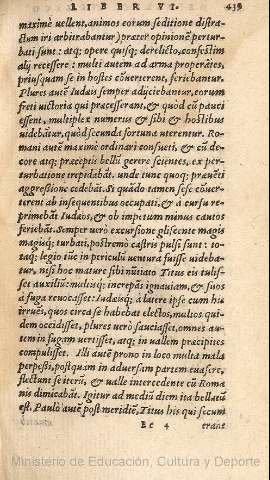 LIBER VI. 439
maximè vellent, animos eorum seditione distra-
ctum iri arbitrabantur) præter opinionẽ pertur-
bati sunt: atq; opere quisq; derelicto, confestim
alij recessere: multi autem ad arma properãtes,
priusquam se in hostes cõuerterent, feriebantur.
Plures autẽ Iudæis semper adijciebantur, eorum
freti victoria qui præcesserant, & quòd cũ pauci
essent, multiplex numerus & sibi & hostibus
uidebatur, quòd secunda fortuna uterentur. Ro-
mani autẽ maximè ordinari consueti, & cũ de-
core atq; præceptis belli gerere scientes, ex per-
turbatione trepidabãt. unde tunc quoq; præuẽti
aggressione cedebãt. Si quãdo tamen sese cõuer-
terent ab insequentibus occupati, & à cursu re-
primebãt Iudæos, & ob impetum minus cautos
feriebãt. Semper uerò excursione gliscente magis
magisq; turbati, postremò castris pulsi sunt: to-
taq; legio tũc in periculũ uentura fuisse uideba-
tur, nisi hoc mature sibi nũtiato Titus eis tulis-
set auxiliũ: multisq; increpãs ignauiam, & suos
à fuga reuocasset: Iudæisq; à latere ipse cum his
irruẽs, quos circa se habebat electos, multos qui-
dem occidisset, plures uerò sauciasset, omnes au-
tem in fugam uertisset, atq; in uallem præcipites
compulisset. Illi autẽ prono in loco multa mala
perpeßi, postquam in aduersam partem euasere,
fluctunt se iterũ, & ualle intercedente cũ Roma
nis dimicabãt. Igitur ad mediũ diem ita bellatũ
est. Paulò autẽ post meridiẽ, Titus his qui secum
Ee 4 erans
Ministerio de Educación, Cultura y Deporte